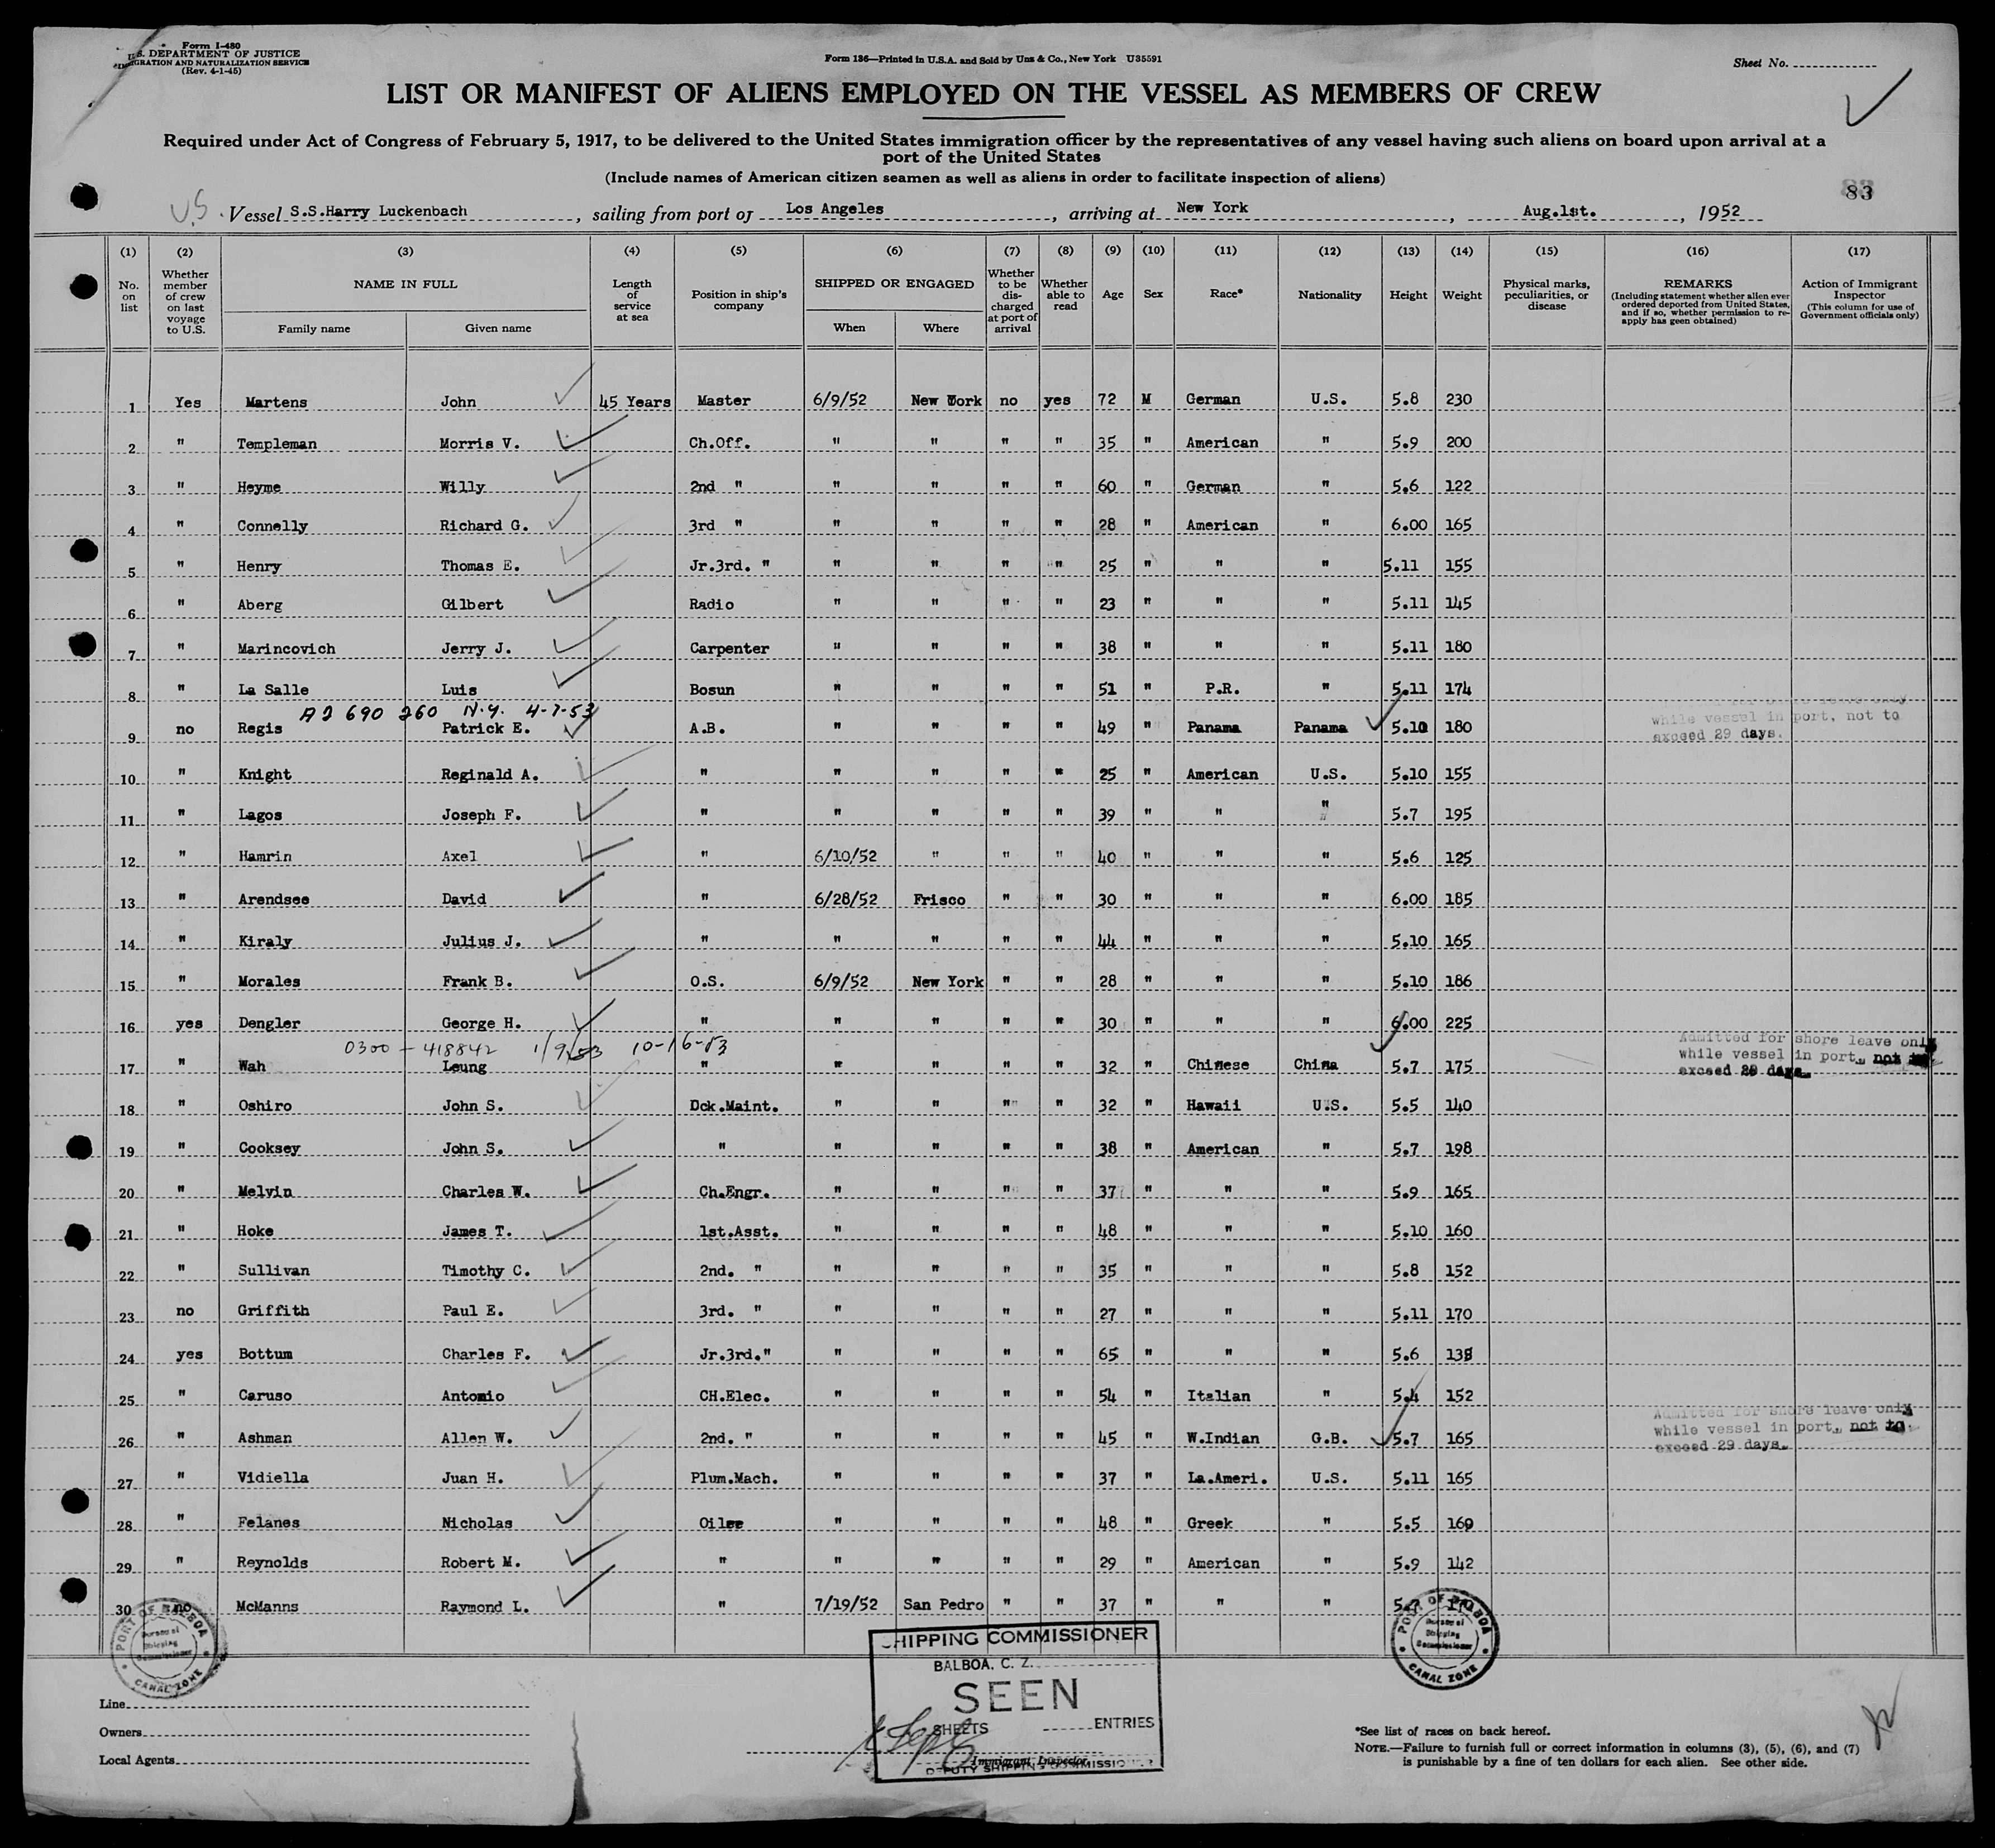 Form I-480
U.S. DEPARTMENT OF JUSTICE
IMMIGRATION AND NATURALIZATION SERVICE
(Rev. 4-1-45)
Form 136—Printed in U.S.A. and Sold by Unz & Co., New York U35591
Sheet No.
LIST OR MANIFEST OF ALIENS EMPLOYED ON THE VESSEL AS MEMBERS OF CREW
Required under Act of Congress of February 5, 1917, to be delivered to the United States immigration officer by the representatives of any vessel having such aliens on board upon arrival at a
port of the United States
(Include names of American citizen seamen as well as aliens in order to facilitate inspection of aliens)
83
US. Vessel S.S.Harry Luckenbach, sailing from port of Los Angeles, arriving at New York, Aug.1st., 1952
(1) (2) (3) (4) (5) (6) (7) (8) (9) (10) (11) (12) (13) (14) (15) (16) (17)
No. on list
Whether member of crew on last voyage to U.S.
NAME IN FULL
Family name Given name
Length of service at sea
Position in ship's company
SHIPPED OR ENGAGED
When Where
Whether to be discharged at port of arrival
Whether able to read
Age
Sex
Race*
Nationality
Height
Weight
Physical marks, peculiarities, or disease
REMARKS
(Including statement whether alien ever ordered deported from United States, and if so, whether permission to re-apply has geen obtained)
Action of Immigrant Inspector
(This column for use of Government officials only)
1 Yes Martens John 45 Years Master 6/9/52 New Work no yes 72 M German U.S. 5.8 230
2 " Templeman Morris V. Ch.Off. " " " " 35 " American " 5.9 200
3 " Heyme Willy 2nd " " " " " 60 " German " 5.6 122
4 " Connelly Richard G. 3rd " " " " " 28 " American " 6.00 165
5 " Henry Thomas E. Jr.3rd. " " " " " 25 " " " 5.11 155
6 " Aberg Gilbert Radio " " " " 23 " " " 5.11 145
7 " Marincovich Jerry J. Carpenter " " " " 38 " " " 5.11 180
8 " La Salle Luis Bosun " " " " 51 " P.R. " 5.11 174
A2 690 260 N.Y. 4-7-53
9 no Regis Patrick E. A.B. " " " " 49 " Panama Panama 5.10 180 while vessel in port, not to exceed 29 days.
10 " Knight Reginald A. " " " " " 25 " American U.S. 5.10 155
11 " Lagos Joseph F. " " " " " 39 " " " 5.7 195
12 " Hamrin Axel " 6/10/52 " " " 40 " " " 5.6 125
13 " Arendsee David " 6/28/52 Frisco " " 30 " " " 6.00 185
14 " Kiraly Julius J. " " " " " 44 " " " 5.10 165
15 " Morales Frank B. O.S. 6/9/52 New York " " 28 " " " 5.10 186
16 yes Dengler George H. " " " " " 30 " " " 6.00 225
0300 - 418842 1/9/53 10-16-53
17 " Wah Leung " " " " " 32 " Chinese China 5.7 175 Admitted for shore leave only while vessel in port, not to exceed 29 days.
18 " Oshiro John S. Dck.Maint. " " " " 32 " Hawaii U.S. 5.5 140
19 " Cooksey John S. " " " " " 38 " American " 5.7 198
20 " Melvin Charles W. Ch.Engr. " " " " 37 " " " 5.9 165
21 " Hoke James T. 1st.Asst. " " " " 48 " " " 5.10 160
22 " Sullivan Timothy C. 2nd. " " " " " 35 " " " 5.8 152
23 no Griffith Paul E. 3rd. " " " " " 27 " " " 5.11 170
24 yes Bottum Charles F. Jr.3rd." " " " " 65 " " " 5.6 138
25 " Caruso Antonio CH.Elec. " " " " 54 " Italian " 5.4 152
26 " Ashman Allen W. 2nd. " " " " " 45 " W.Indian G.B. 5.7 165 Admitted for shore leave only while vessel in port, not to exceed 29 days.
27 " Vidiella Juan H. Plum.Mach. " " " " 37 " La.Ameri. U.S. 5.11 165
28 " Felanes Nicholas Oiler " " " " 48 " Greek " 5.5 169
29 " Reynolds Robert M. " " " " " 29 " American " 5.9 142
30 no McManns Raymond L. " 7/19/52 San Pedro " " 37 " " "
PORT OF BALBOA
Shipping Commissioner
CANAL ZONE
PORT OF BALBOA
Shipping Commissioner
CANAL ZONE
SHIPPING COMMISSIONER
BALBOA, C. Z.
SEEN
SHEETS ENTRIES
Immigrant Inspector
DEPUTY SHIPPING COMMISSIONER
Line
Owners
Local Agents
*See list of races on back hereof.
NOTE.—Failure to furnish full or correct information in columns (3), (5), (6), and (7)
is punishable by a fine of ten dollars for each alien. See other side.